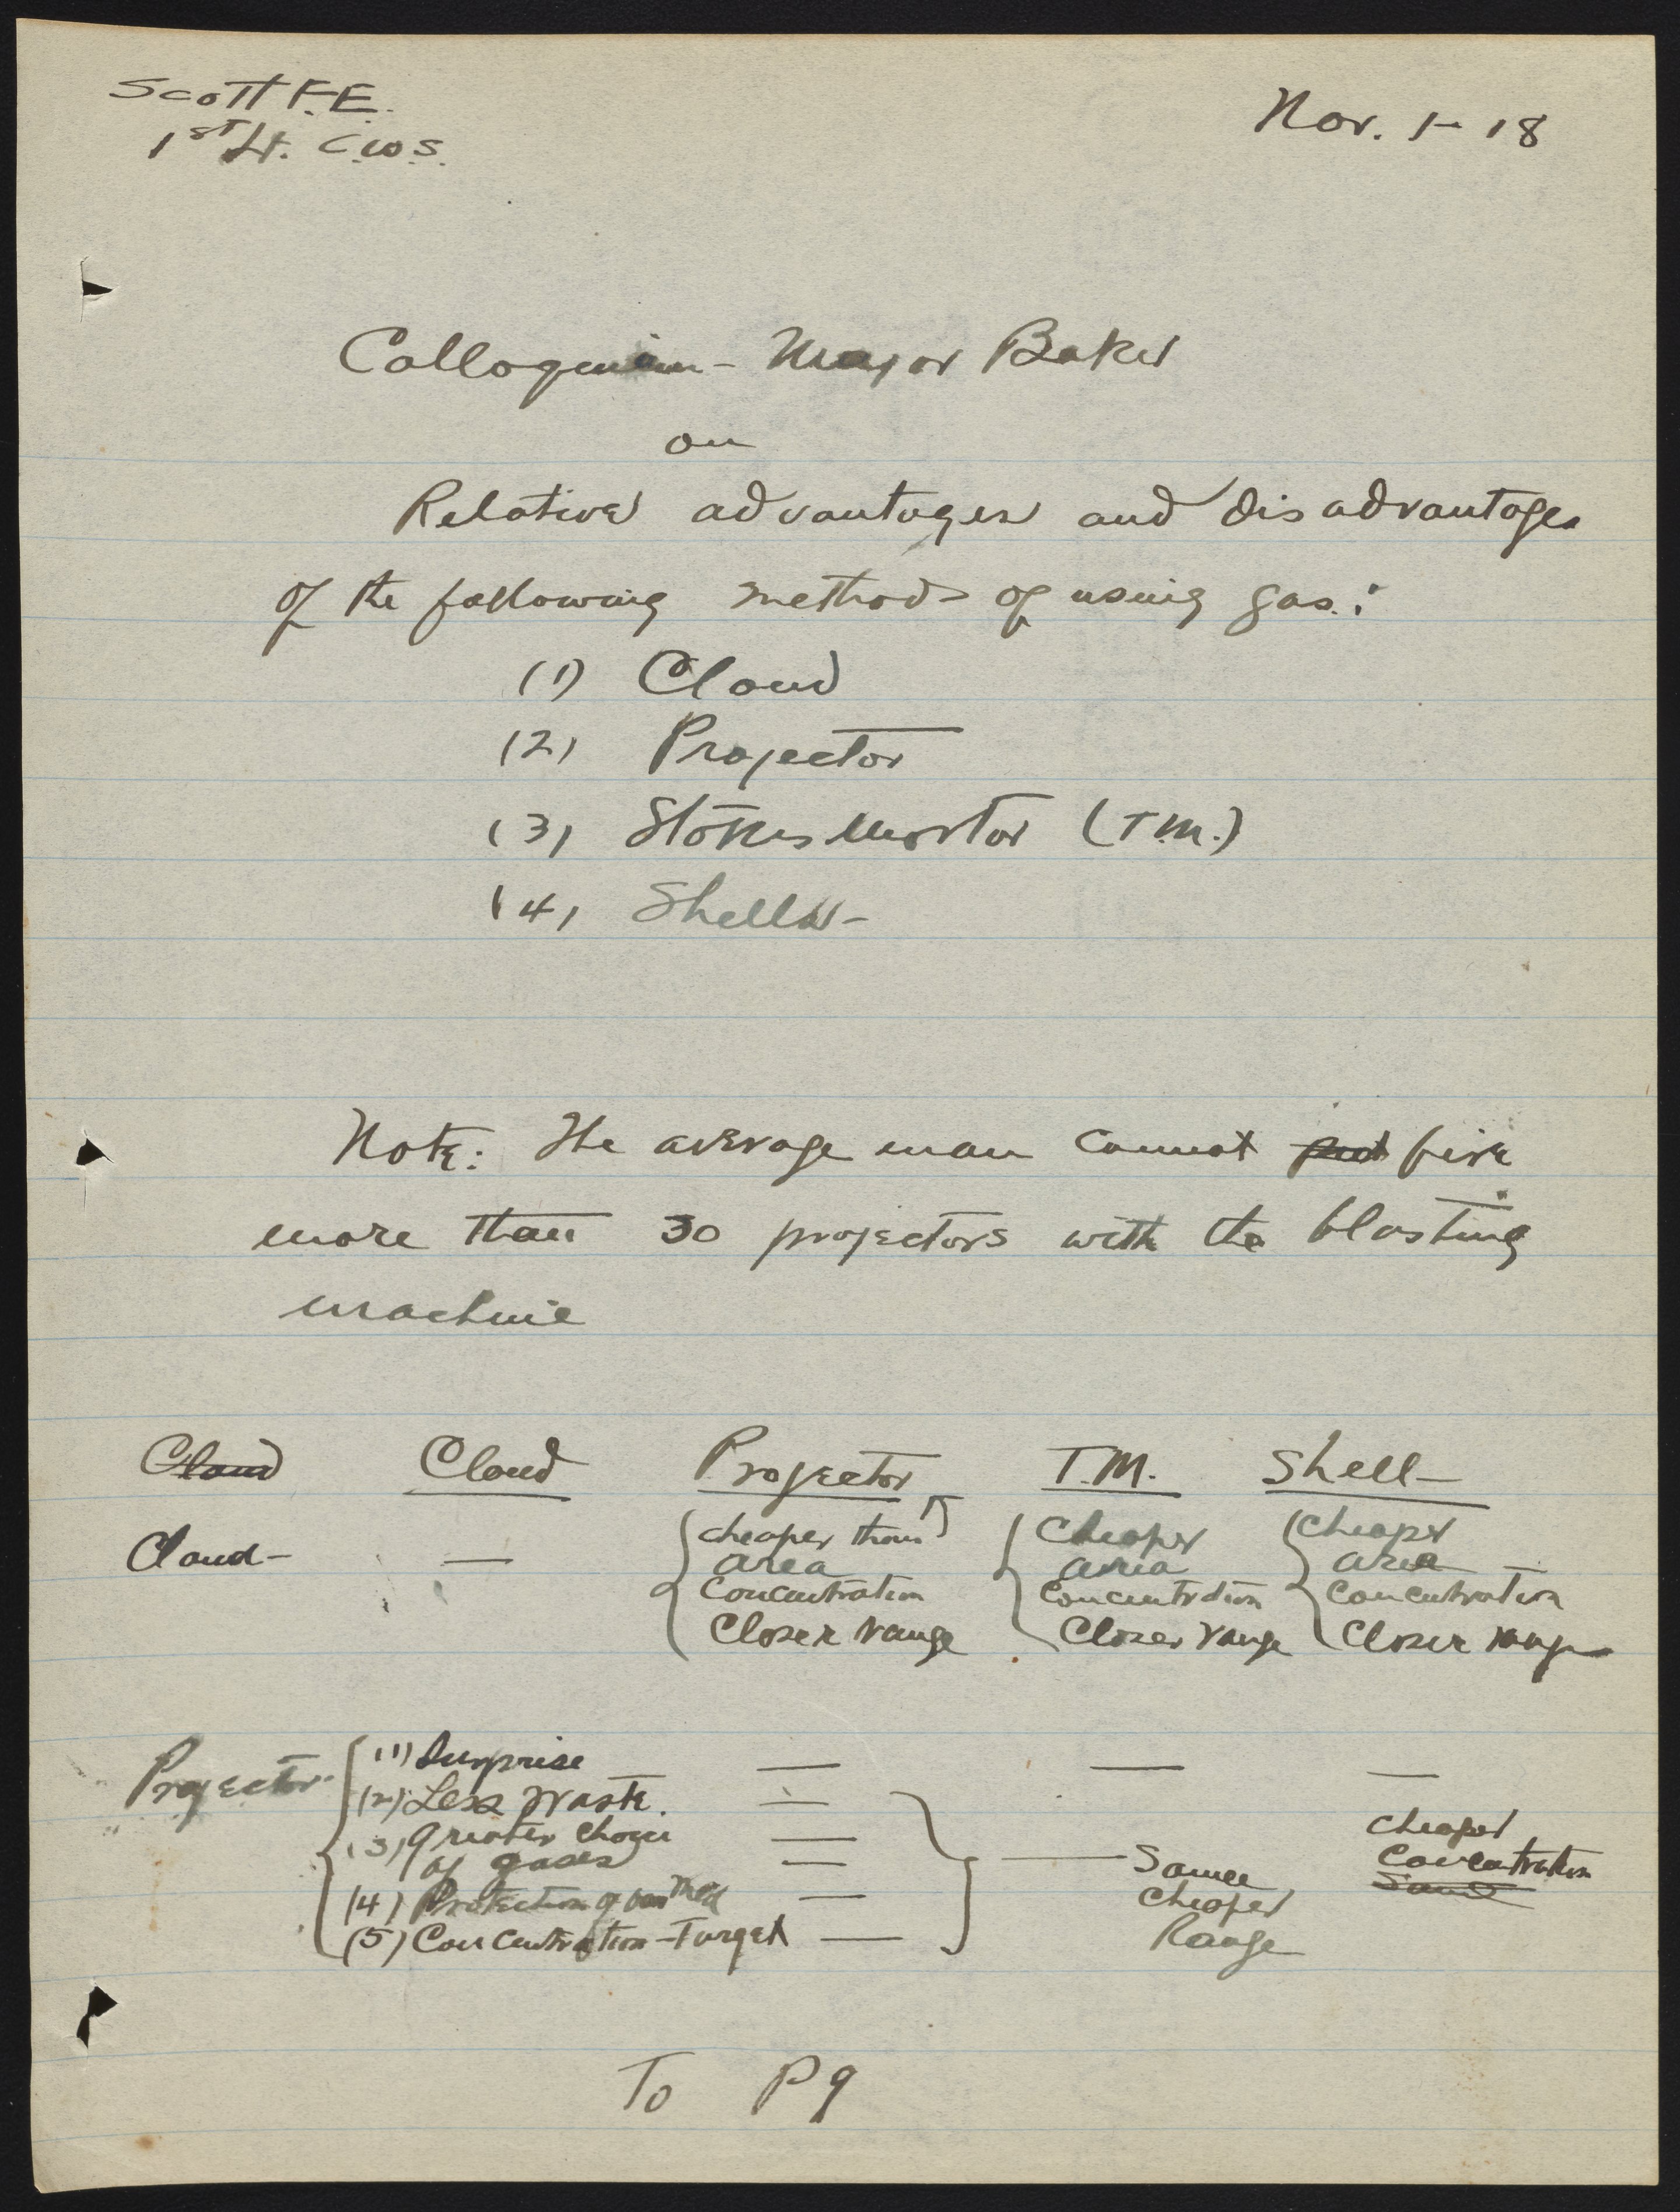 Scott F.E.
1st Lt. C.W.S.
Nov. 1 - 18
Colloquium - Major Baker
on
Relative advantages and disadvantages
of the following methods of using gas:
(1) Cloud
(2) Projector
(3) Stokes Mortor (T.M.)
(4) Shells -
Note: The average man cannot fire
more than 30 projectors with the blasting
machine
Cloud Cloud Projector T.M. Shell -
Cloud - — cheaper than Cheaper Cheaper
area area area
Concentration Concentration Concentration
Closer range Closer range Closer range
Projector (1) Surprise — — —
(2) Less waste. —
(3) Greater choice — Cheaper
of gases — — Same Concentration
(4) Protection of — Cheaper Same
(5) Concentration - Target — Range
To P 9